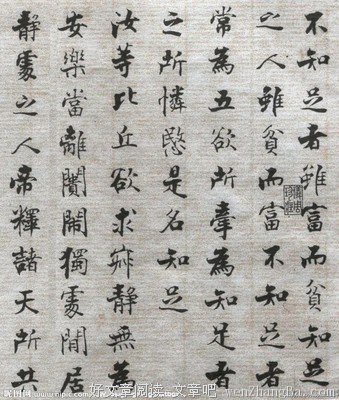 不知足者雖富而貧知足
之人雖貧而富不知足者
常為五欲所牽為知足者
之所憐愍是名知足
汝等比丘欲求寂靜無為
安樂當離憒鬧獨處閒居
靜處之人帝釋諸天所共
好文章阅读-文章吧
wenzhangba.com